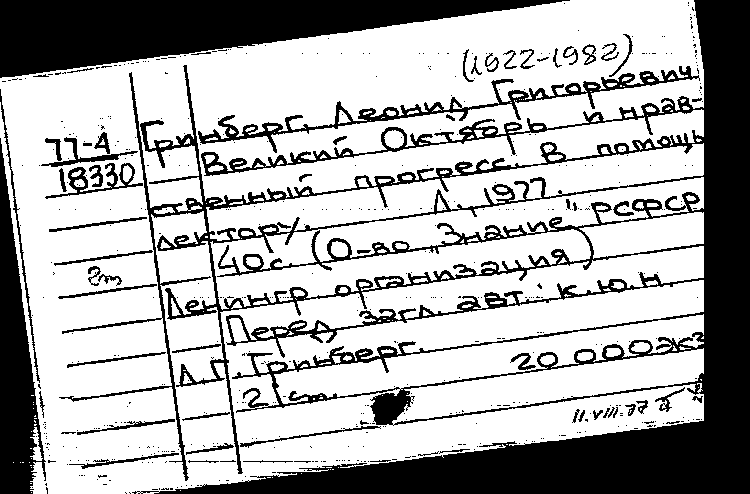 (1922-1982)
77-4 Гринберг, Леонид Григорьевич.
18330 Великий Октябрь и нрав-
ственный прогресс. В помощь
лектору. Л., 1977.
40с. (О-во „Знание" РСФСР.
2т
Ленингр организация)
Перед загл. авт.: к.ю.н.
Л.Г. Гринберг.
20 000экз
2|ст.
11.VIII.77